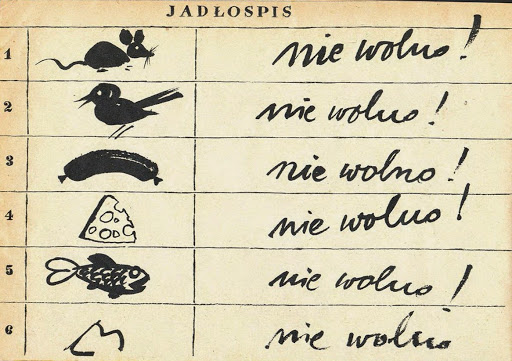 JADŁOSPIS
1 nie wolno!
2 nie wolno!
3 nie wolno!
4 nie wolno!
5 nie wolno!
6 nie wolno